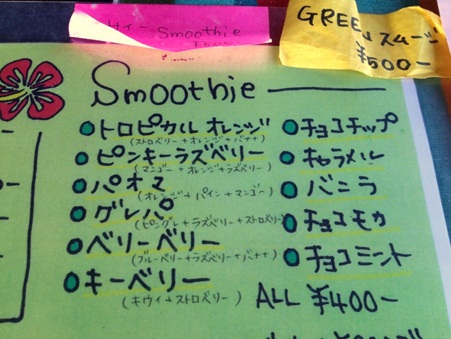 Smoothie
GREENスムージー
¥500-
Smoothie
トロピカル オレンジ
(ストロベリー+オレンジ+バナナ)
ピンキーラズベリー
(マンゴー+オレンジ+ラズベリー)
パオマ
(オレンジ+パイン+マンゴー)
グレパ
(ピングレ+ラズベリー+ストロベリー)
ベリーベリー
(ブルーベリー+ラズベリー+バナナ)
キーベリー
(キウイ+ストロベリー)
チョコチップ
キャラメル
バニラ
チョコモカ
チョコミント
ALL ¥400-